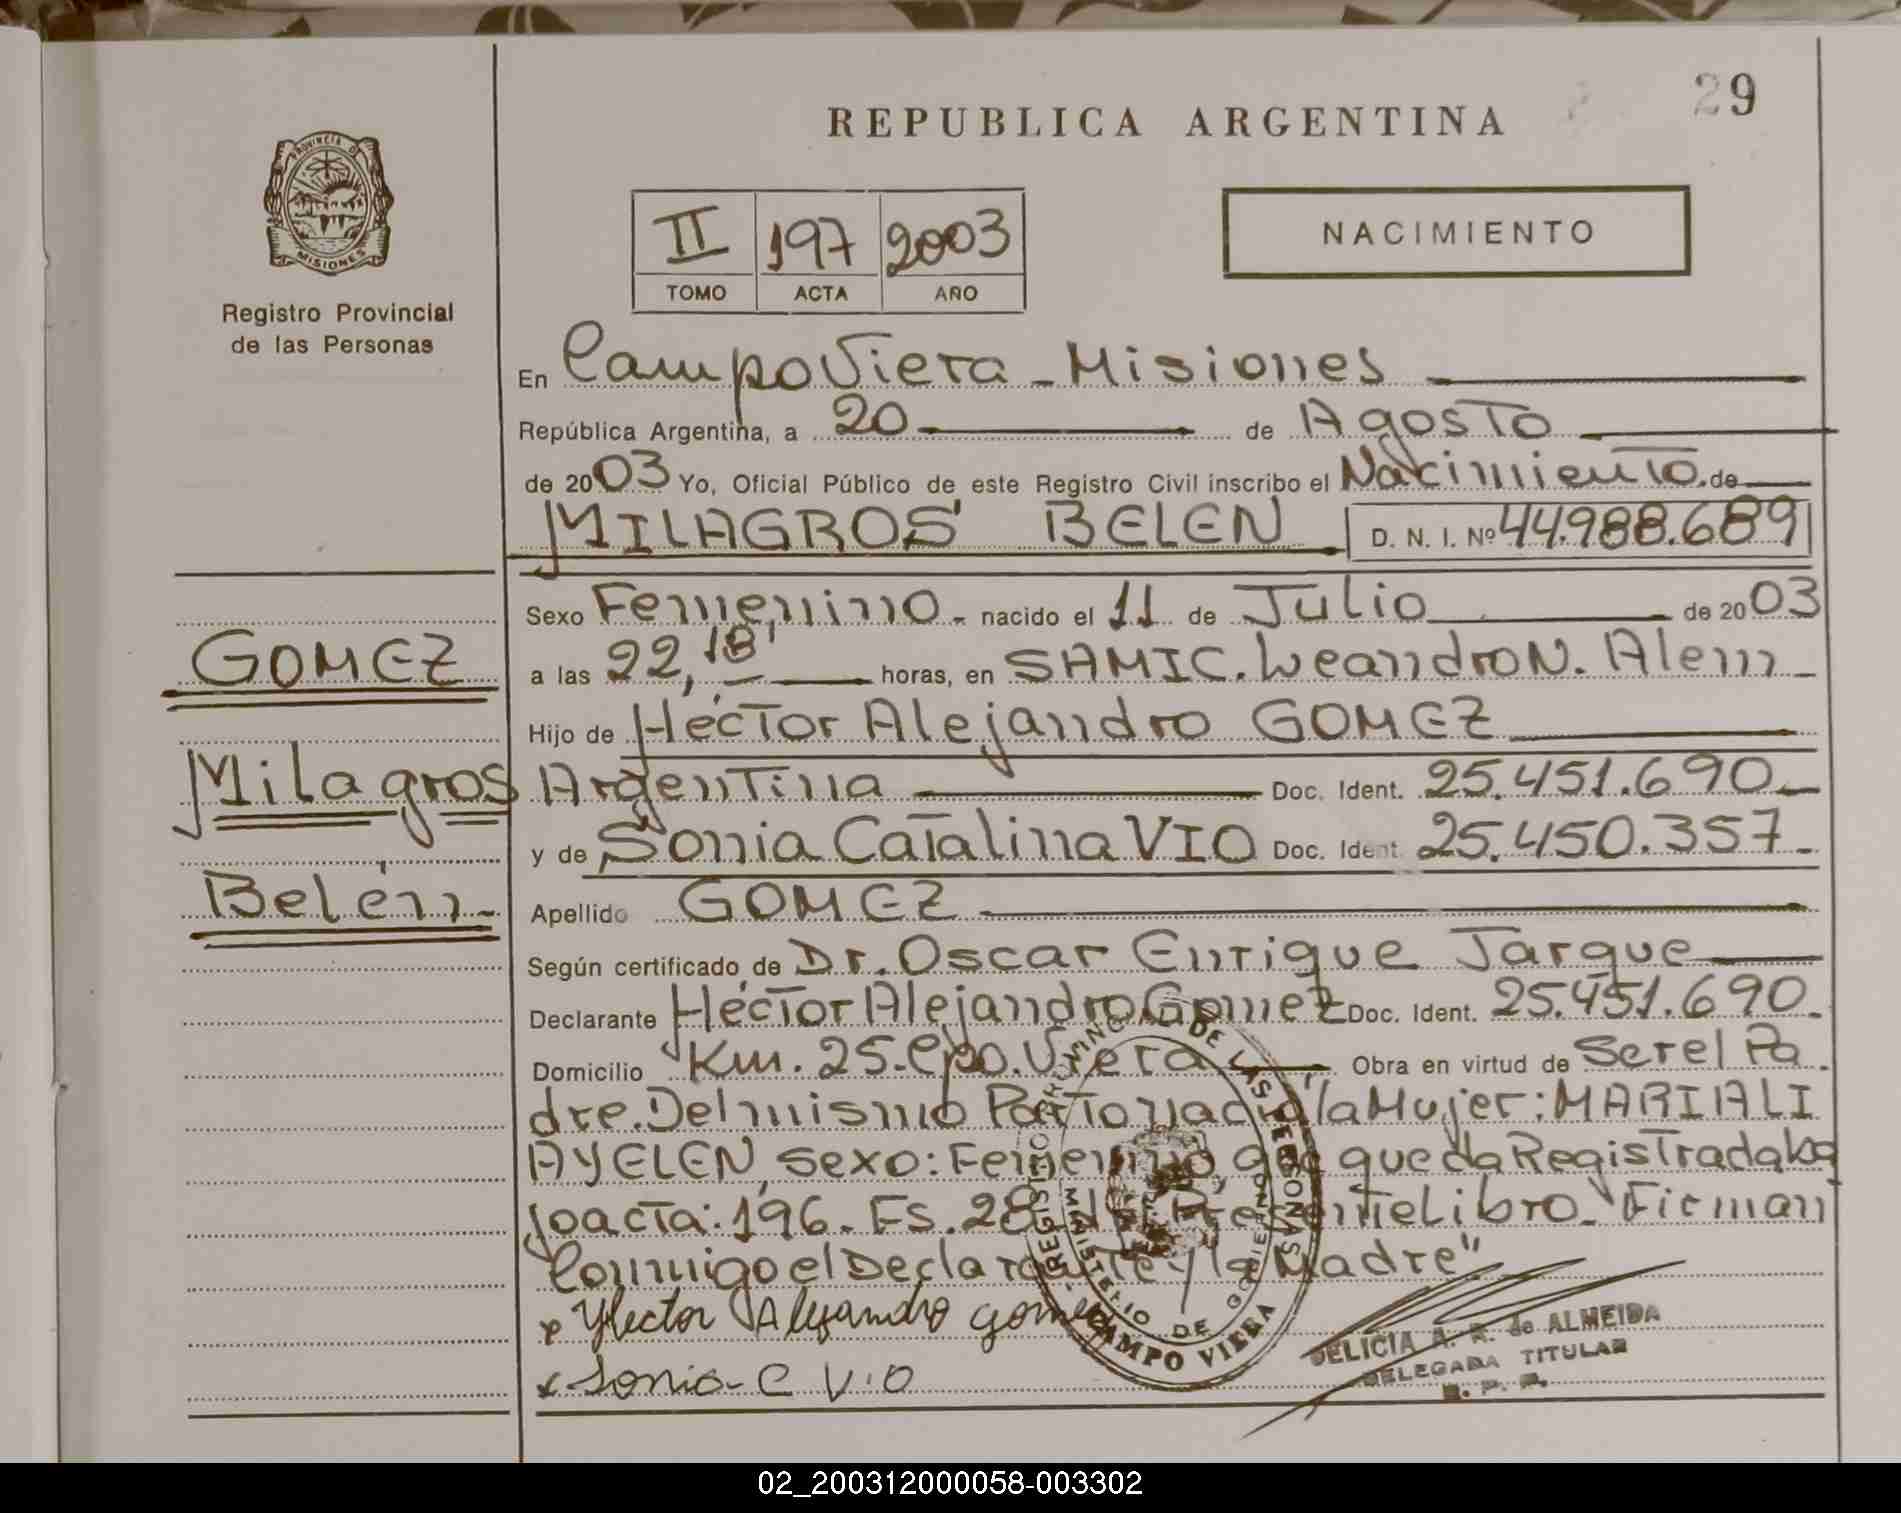 29
REPUBLICA ARGENTINA
PROVINCIA DE
MISIONES
Registro Provincial
de las Personas
II 197 2003
TOMO ACTA AÑO
NACIMIENTO
En Campo Viera - Misiones
República Argentina, a 20 de Agosto
de 2003 Yo, Oficial Público de este Registro Civil inscribo el Nacimiento de
MILAGROS BELEN D. N. I. Nº 44.988.689
Sexo Femenino - nacido el 11 de Julio de 2003
a las 22,18' horas, en SAMIC. Leandro N. Alem
Hijo de Héctor Alejandro GOMEZ
Argentina Doc. Ident. 25.451.690
y de Sonia Catalina VIO Doc. Ident. 25.450.357
Apellido GOMEZ
Según certificado de Dr. Oscar Enrique Jarque
Declarante Héctor Alejandro Gomez Doc. Ident. 25.451.690
Domicilio Km. 25-Cpo. Viera Obra en virtud de Ser el Pa
dre. Del mismo Parto nació "la Mujer: MARIALI
AYELEN, sexo: Femenino, que queda Registrada ba
jo acta: 196. Fs. 28 del Presente Libro. Firman
Conmigo el Declarante y la Madre"
Hector Alejandro gomez
Sonia C Vio
GOMEZ
Milagros
Belén
REGISTRO PROVINCIAL DE LAS PERSONAS
MINISTERIO DE GOBIERNO
CAMPO VIERA
DELICIA A. R. de ALMEIDA
DELEGADA TITULAR
R. P. P.
02_200312000058-003302